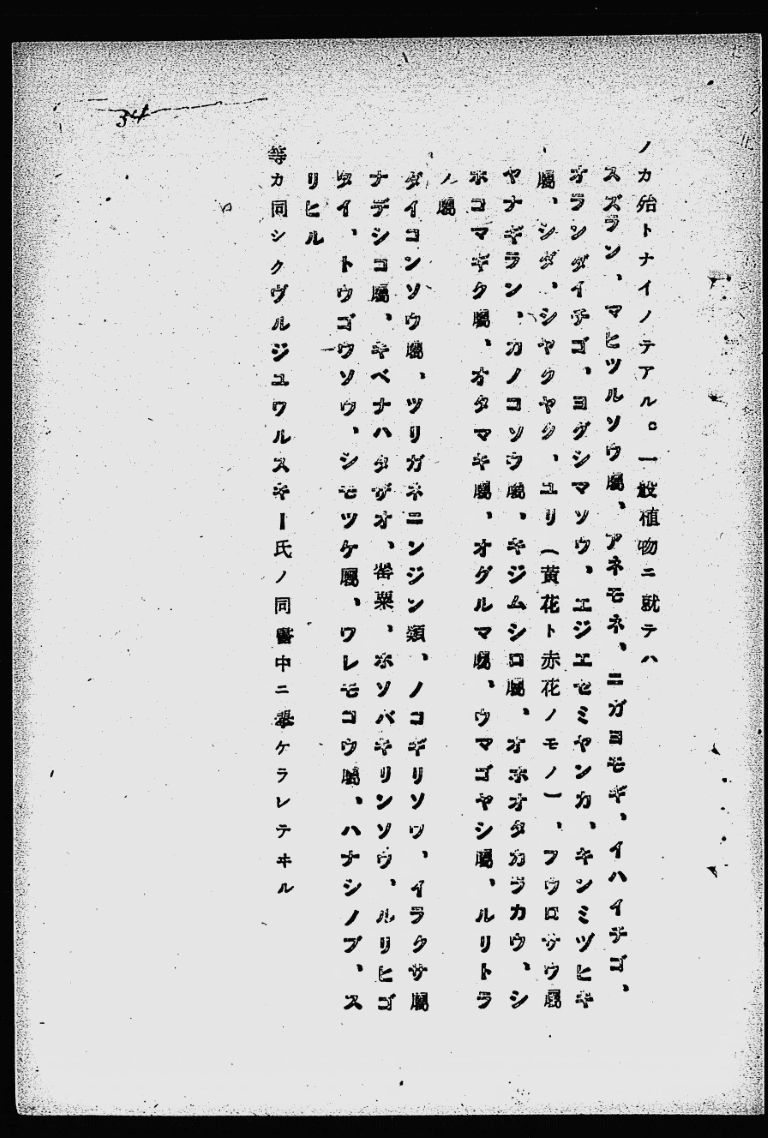 34
ノカ殆トナイノテアル。一般植物ニ就テハ
スズラン、マヒヅルソウ屬、アネモネ、ニガヨモギ、イハイチゴ、
オランダイチゴ、ヨグシマソウ、エジエセミヤンカ、キンミヅヒキ
屬、シダ、シヤクヤク、ユリ(黄花ト赤花ノモノ)、フウロサウ屬
ヤナギラン、カノコソウ屬、キジムシロ屬、オホオタカラカウ、シ
ホコマギク屬、オタマキ屬、オグルマ屬、ウマゴヤシ屬、ルリトラ
ノ屬
ダイコンソウ屬、ツリガネニンジン類、ノコギリソウ、イラクサ屬
ナデシコ屬、キベナハタザオ、罌粟、ホソバキリンソウ、ルリヒゴ
タイ、トウゴウソウ、シモツケ屬、ワレモコウ屬、ハナシノブ、ス
リヒル
等カ同シクヴルジユワルスキー氏ノ同書中ニ擧ケラレテヰル